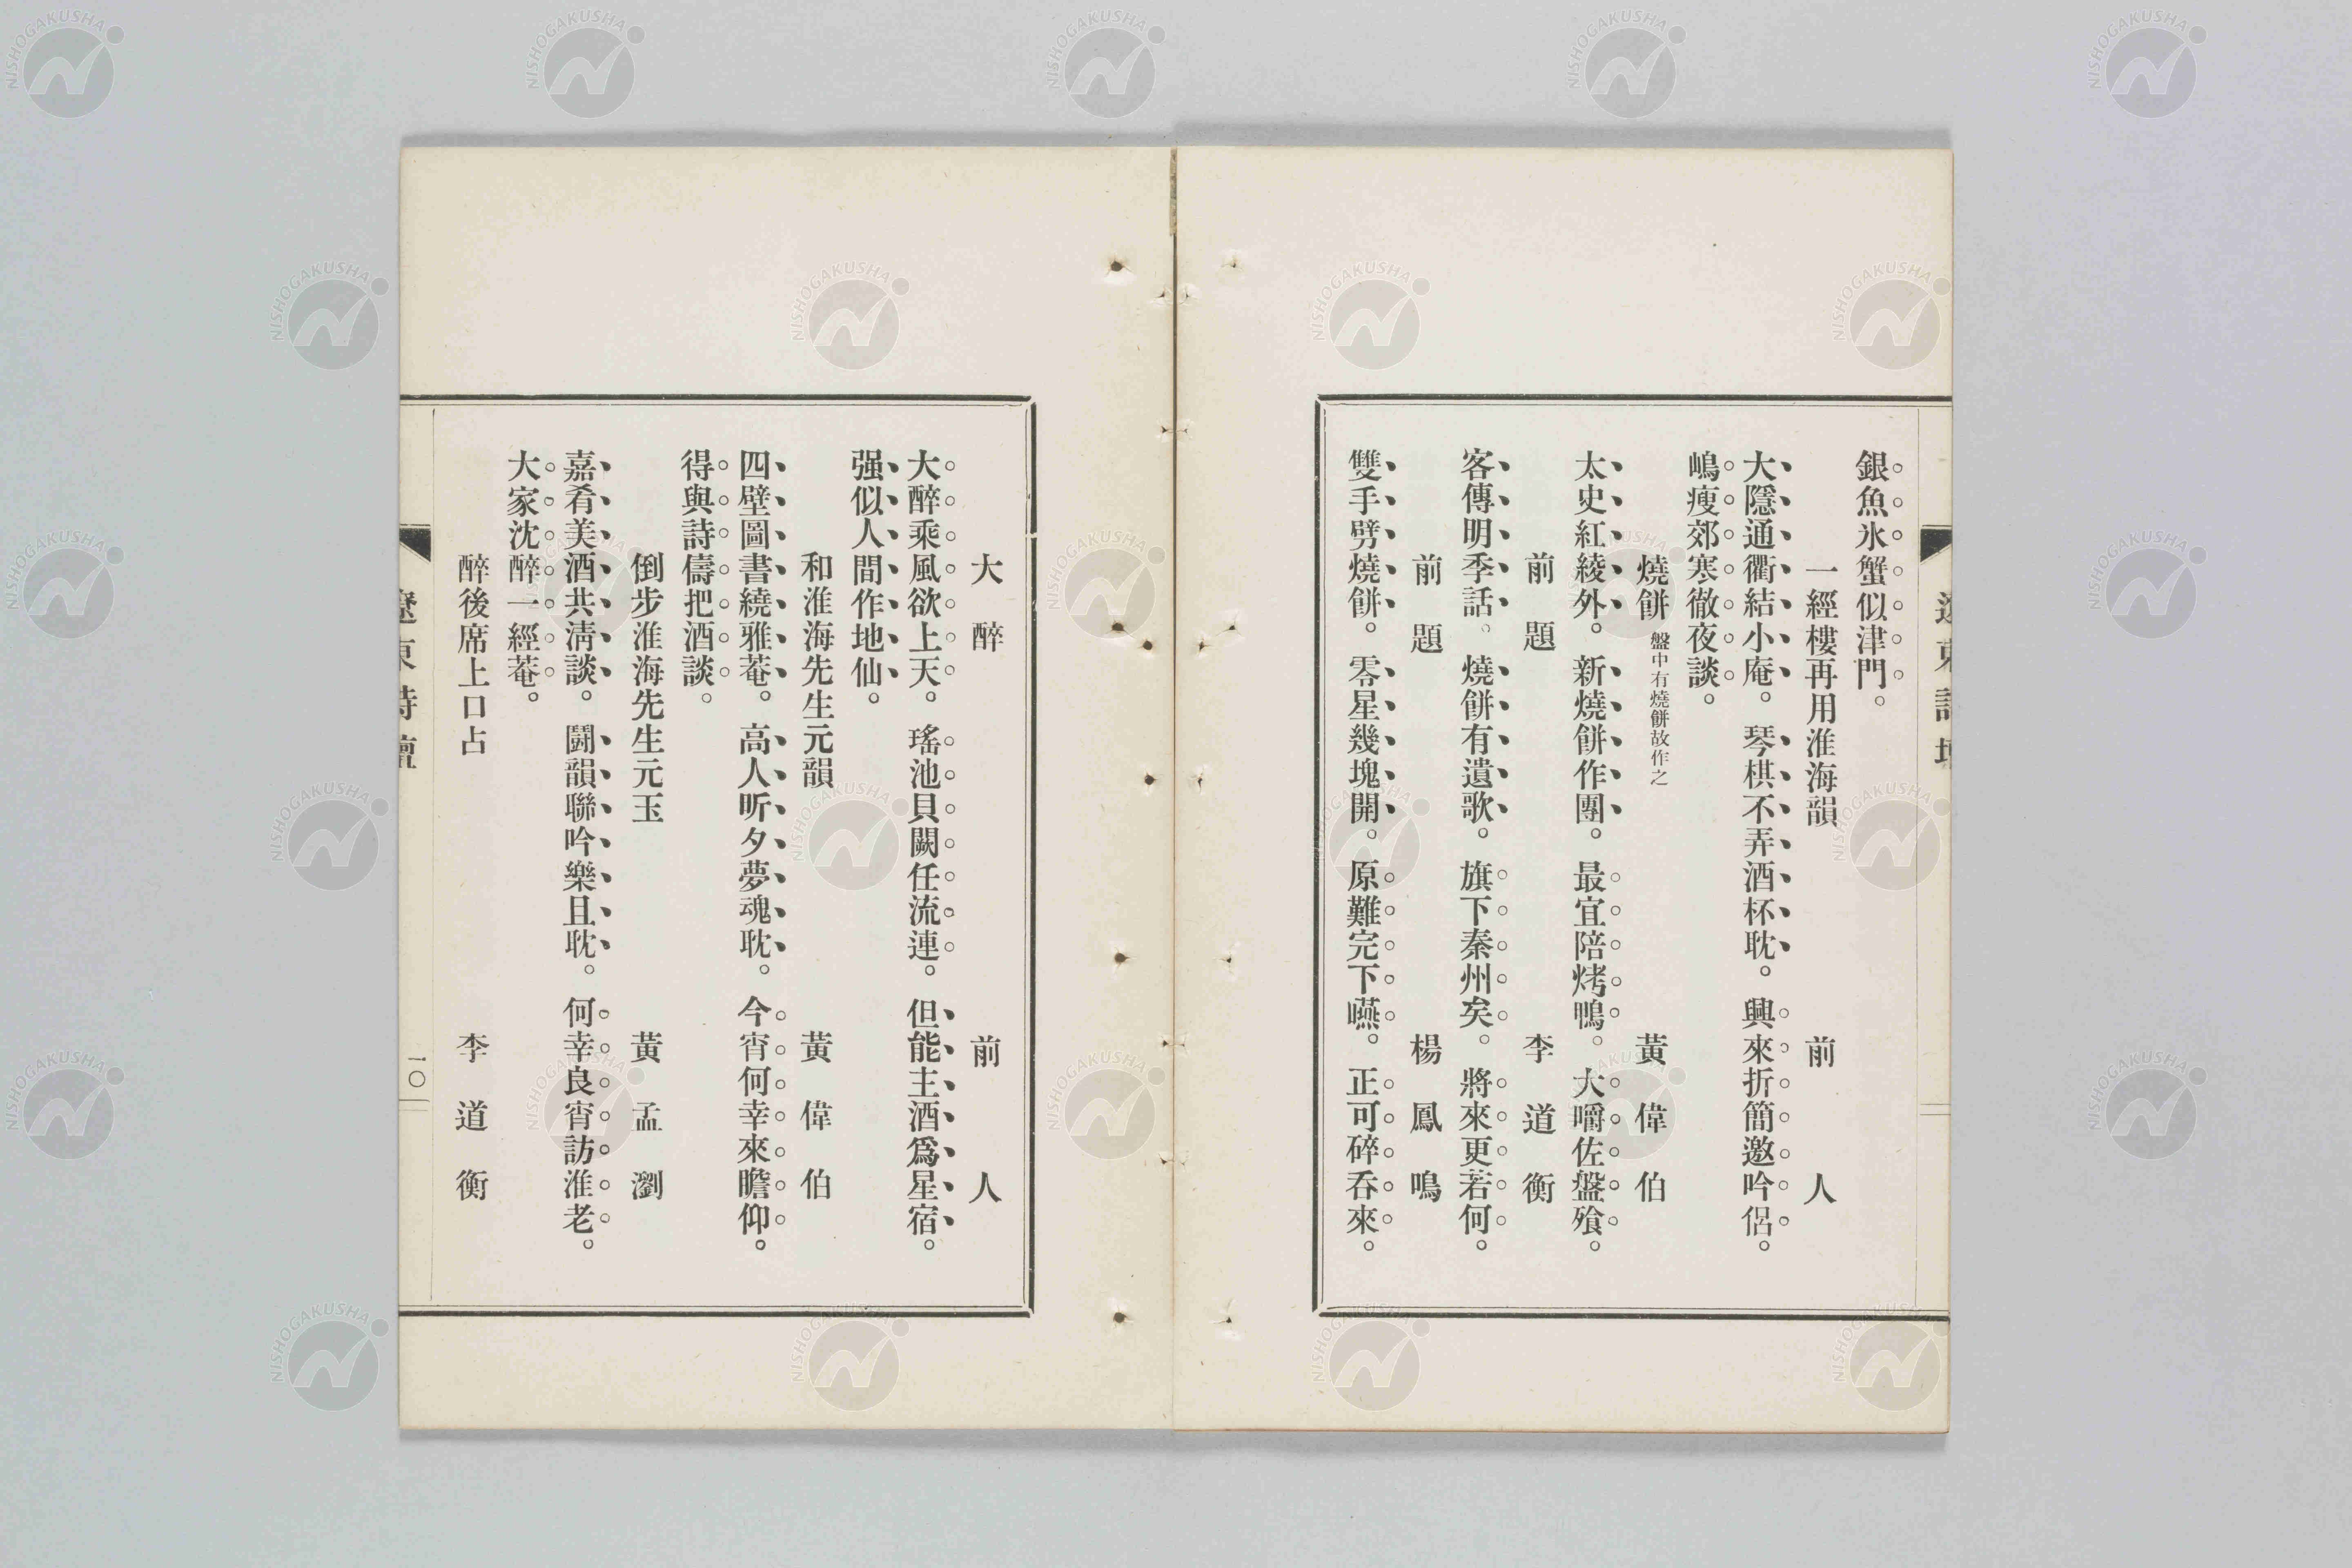 銀魚氷蟹似津門。
一經樓再用淮海韻 前人
大隱通衢結小庵。琴棋不弄酒杯耽。興來折簡邀吟侶。
嶋瘦郊寒徹夜談。
燒餅 盤中有燒餅故作之 黃偉伯
太史紅綾外。新燒餅作團。最宜陪烤鴨。大嚼佐盤飱。
前題 李道衡
客傳明季話。燒餅有遺歌。旗下秦州矣。將來更若何。
前題 楊鳳鳴
雙手劈燒餅。零星幾塊開。原難完下嚥。正可碎呑來。
大醉 前人
大醉乘風欲上天。瑤池貝闕任流連。但能主酒爲星宿。
强似人間作地仙。
和淮海先生元韻 黃偉伯
四壁圖書繞雅菴。高人昕夕夢魂耽。今宵何幸來瞻仰。
得與詩儔把酒談。
倒步淮海先生元玉 黃孟瀏
嘉肴美酒共淸談。鬪韻聯吟樂且耽。何幸良宵訪淮老。
大家沈醉一經菴。
醉後席上口占 李道衡
遼東詩壇
一〇
NISHOGAKUSHA